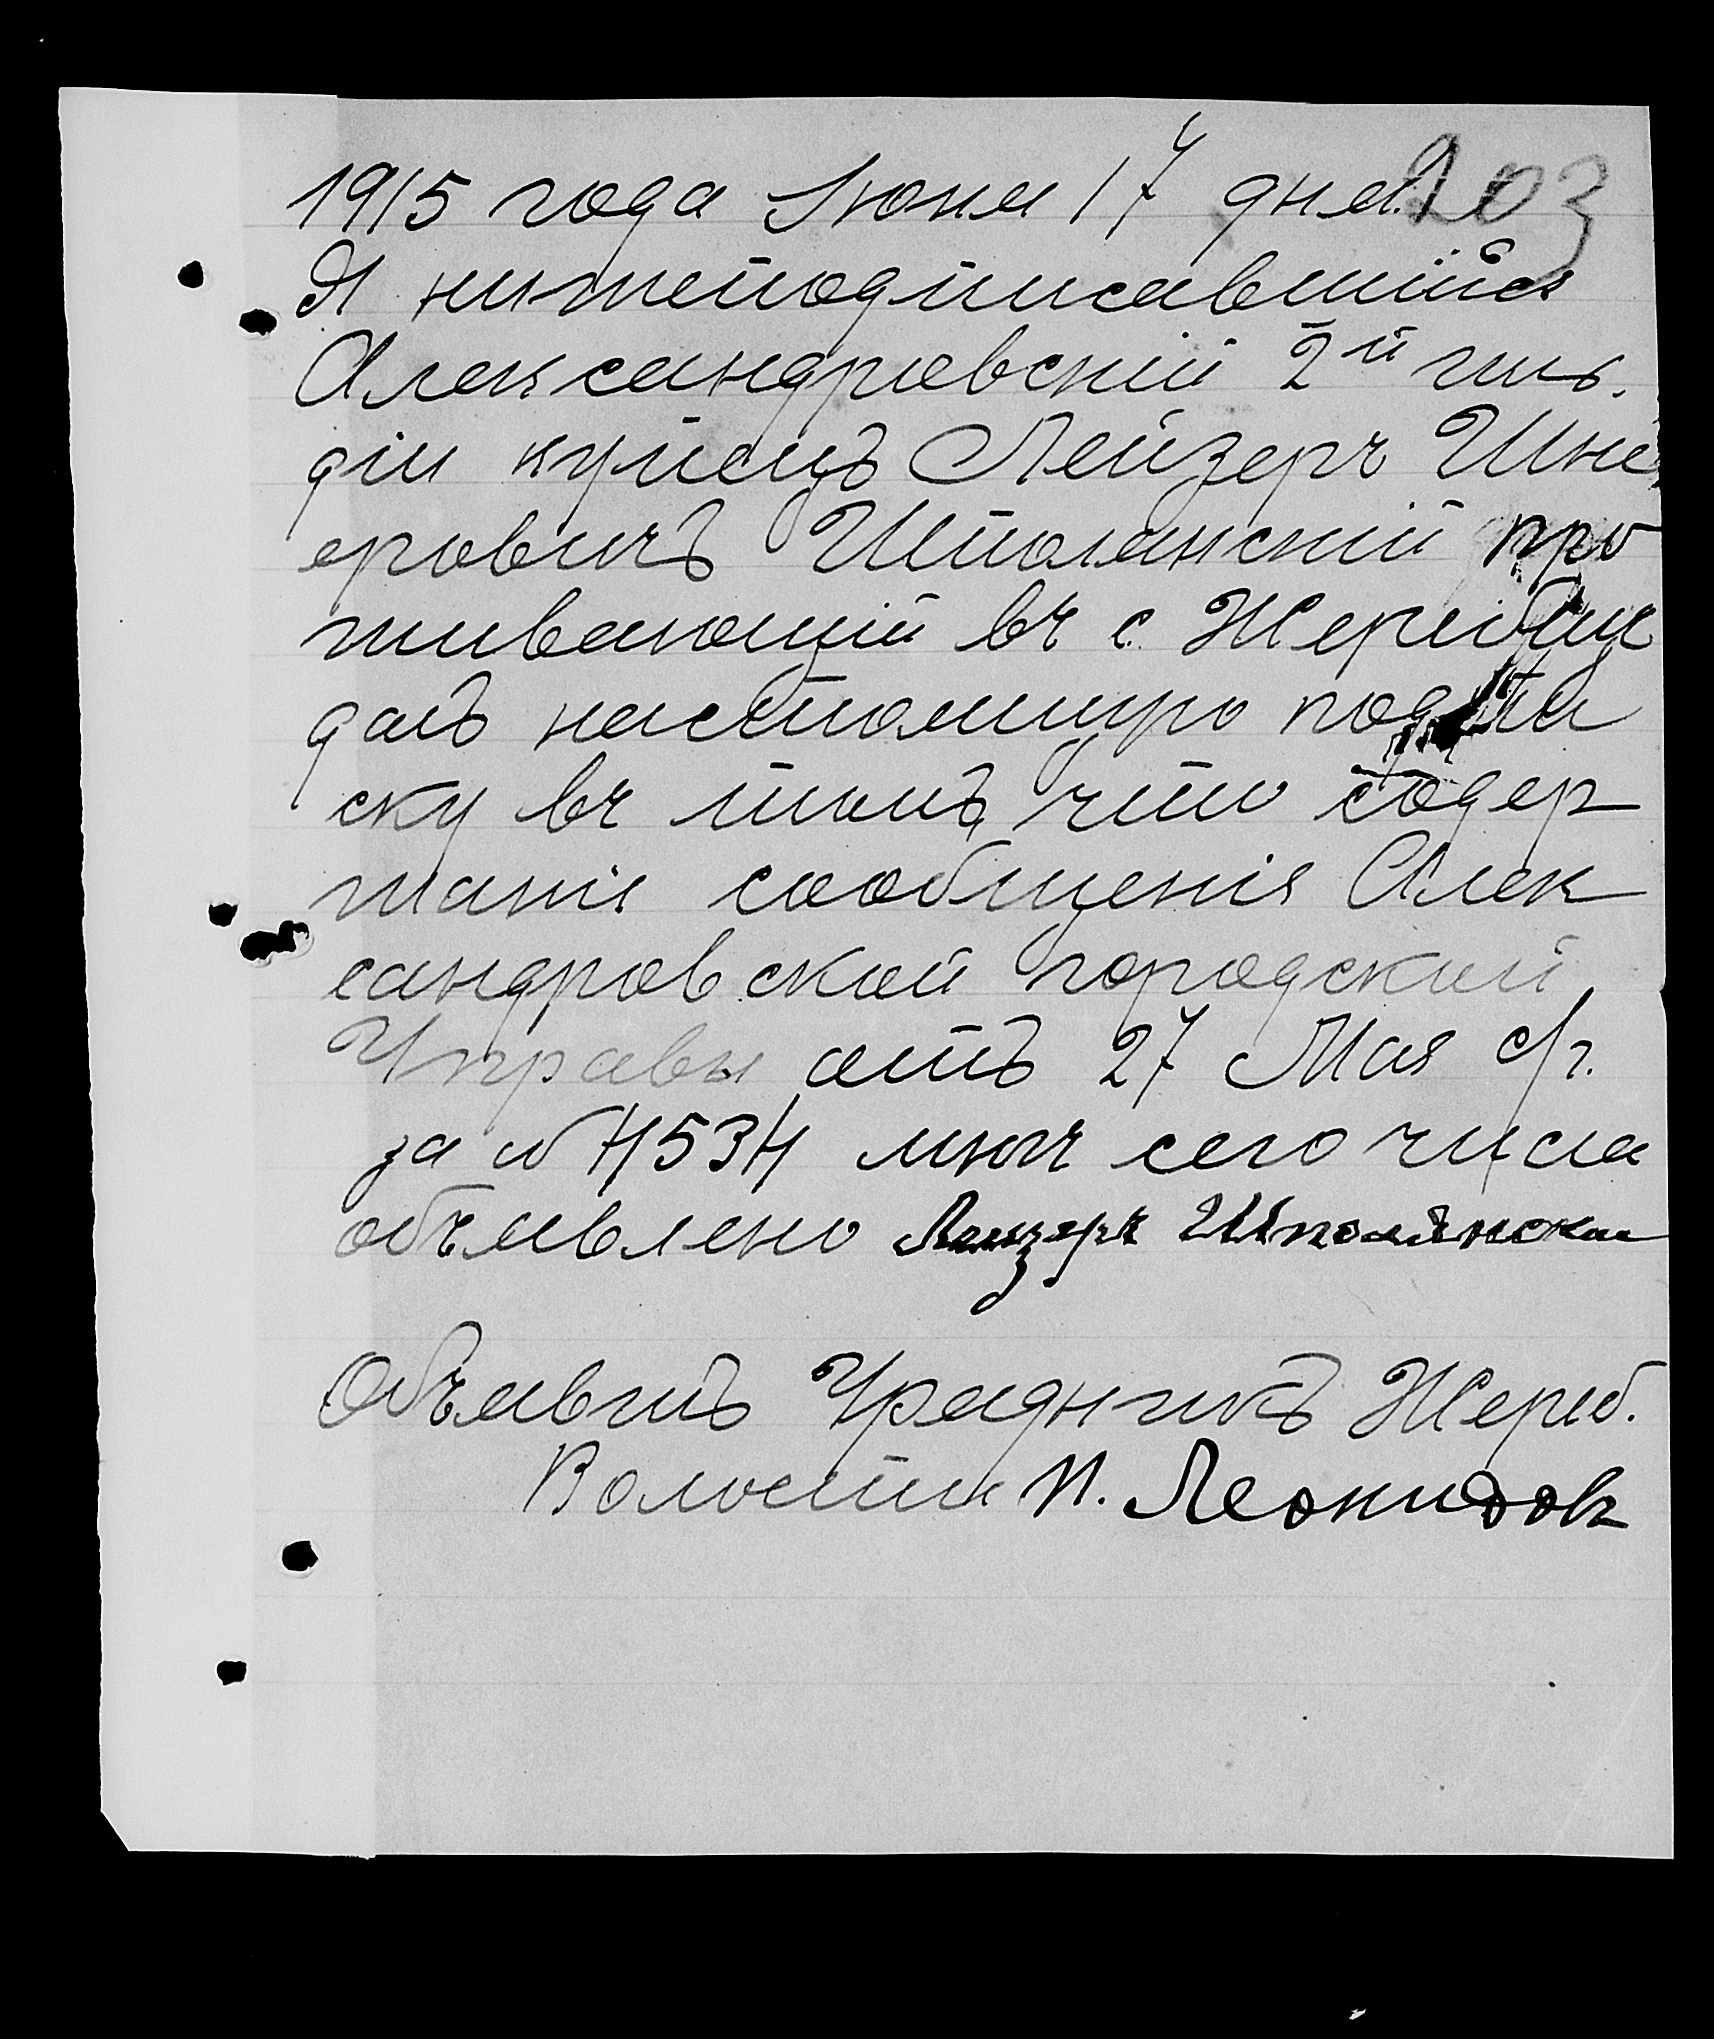 203
1915 года Іюня 17 дня.
Я нижеподписавшійся
Александровскій 2й гиль.
діи купецъ Лейзеръ Шне
еровичъ Шполянскій про
живающій въ с. Жеребцѣ
далъ настоящую подпи
ску въ томъ, что содер
жаніе сообщенія Алек
сандровской городской
Управы отъ 27 Мая с/г.
за № 4534 мнѣ сего числа
объявлено Лейзеръ Шполянскій
Объявилъ Урядникъ Жереб.
Волости И. Леонидовъ